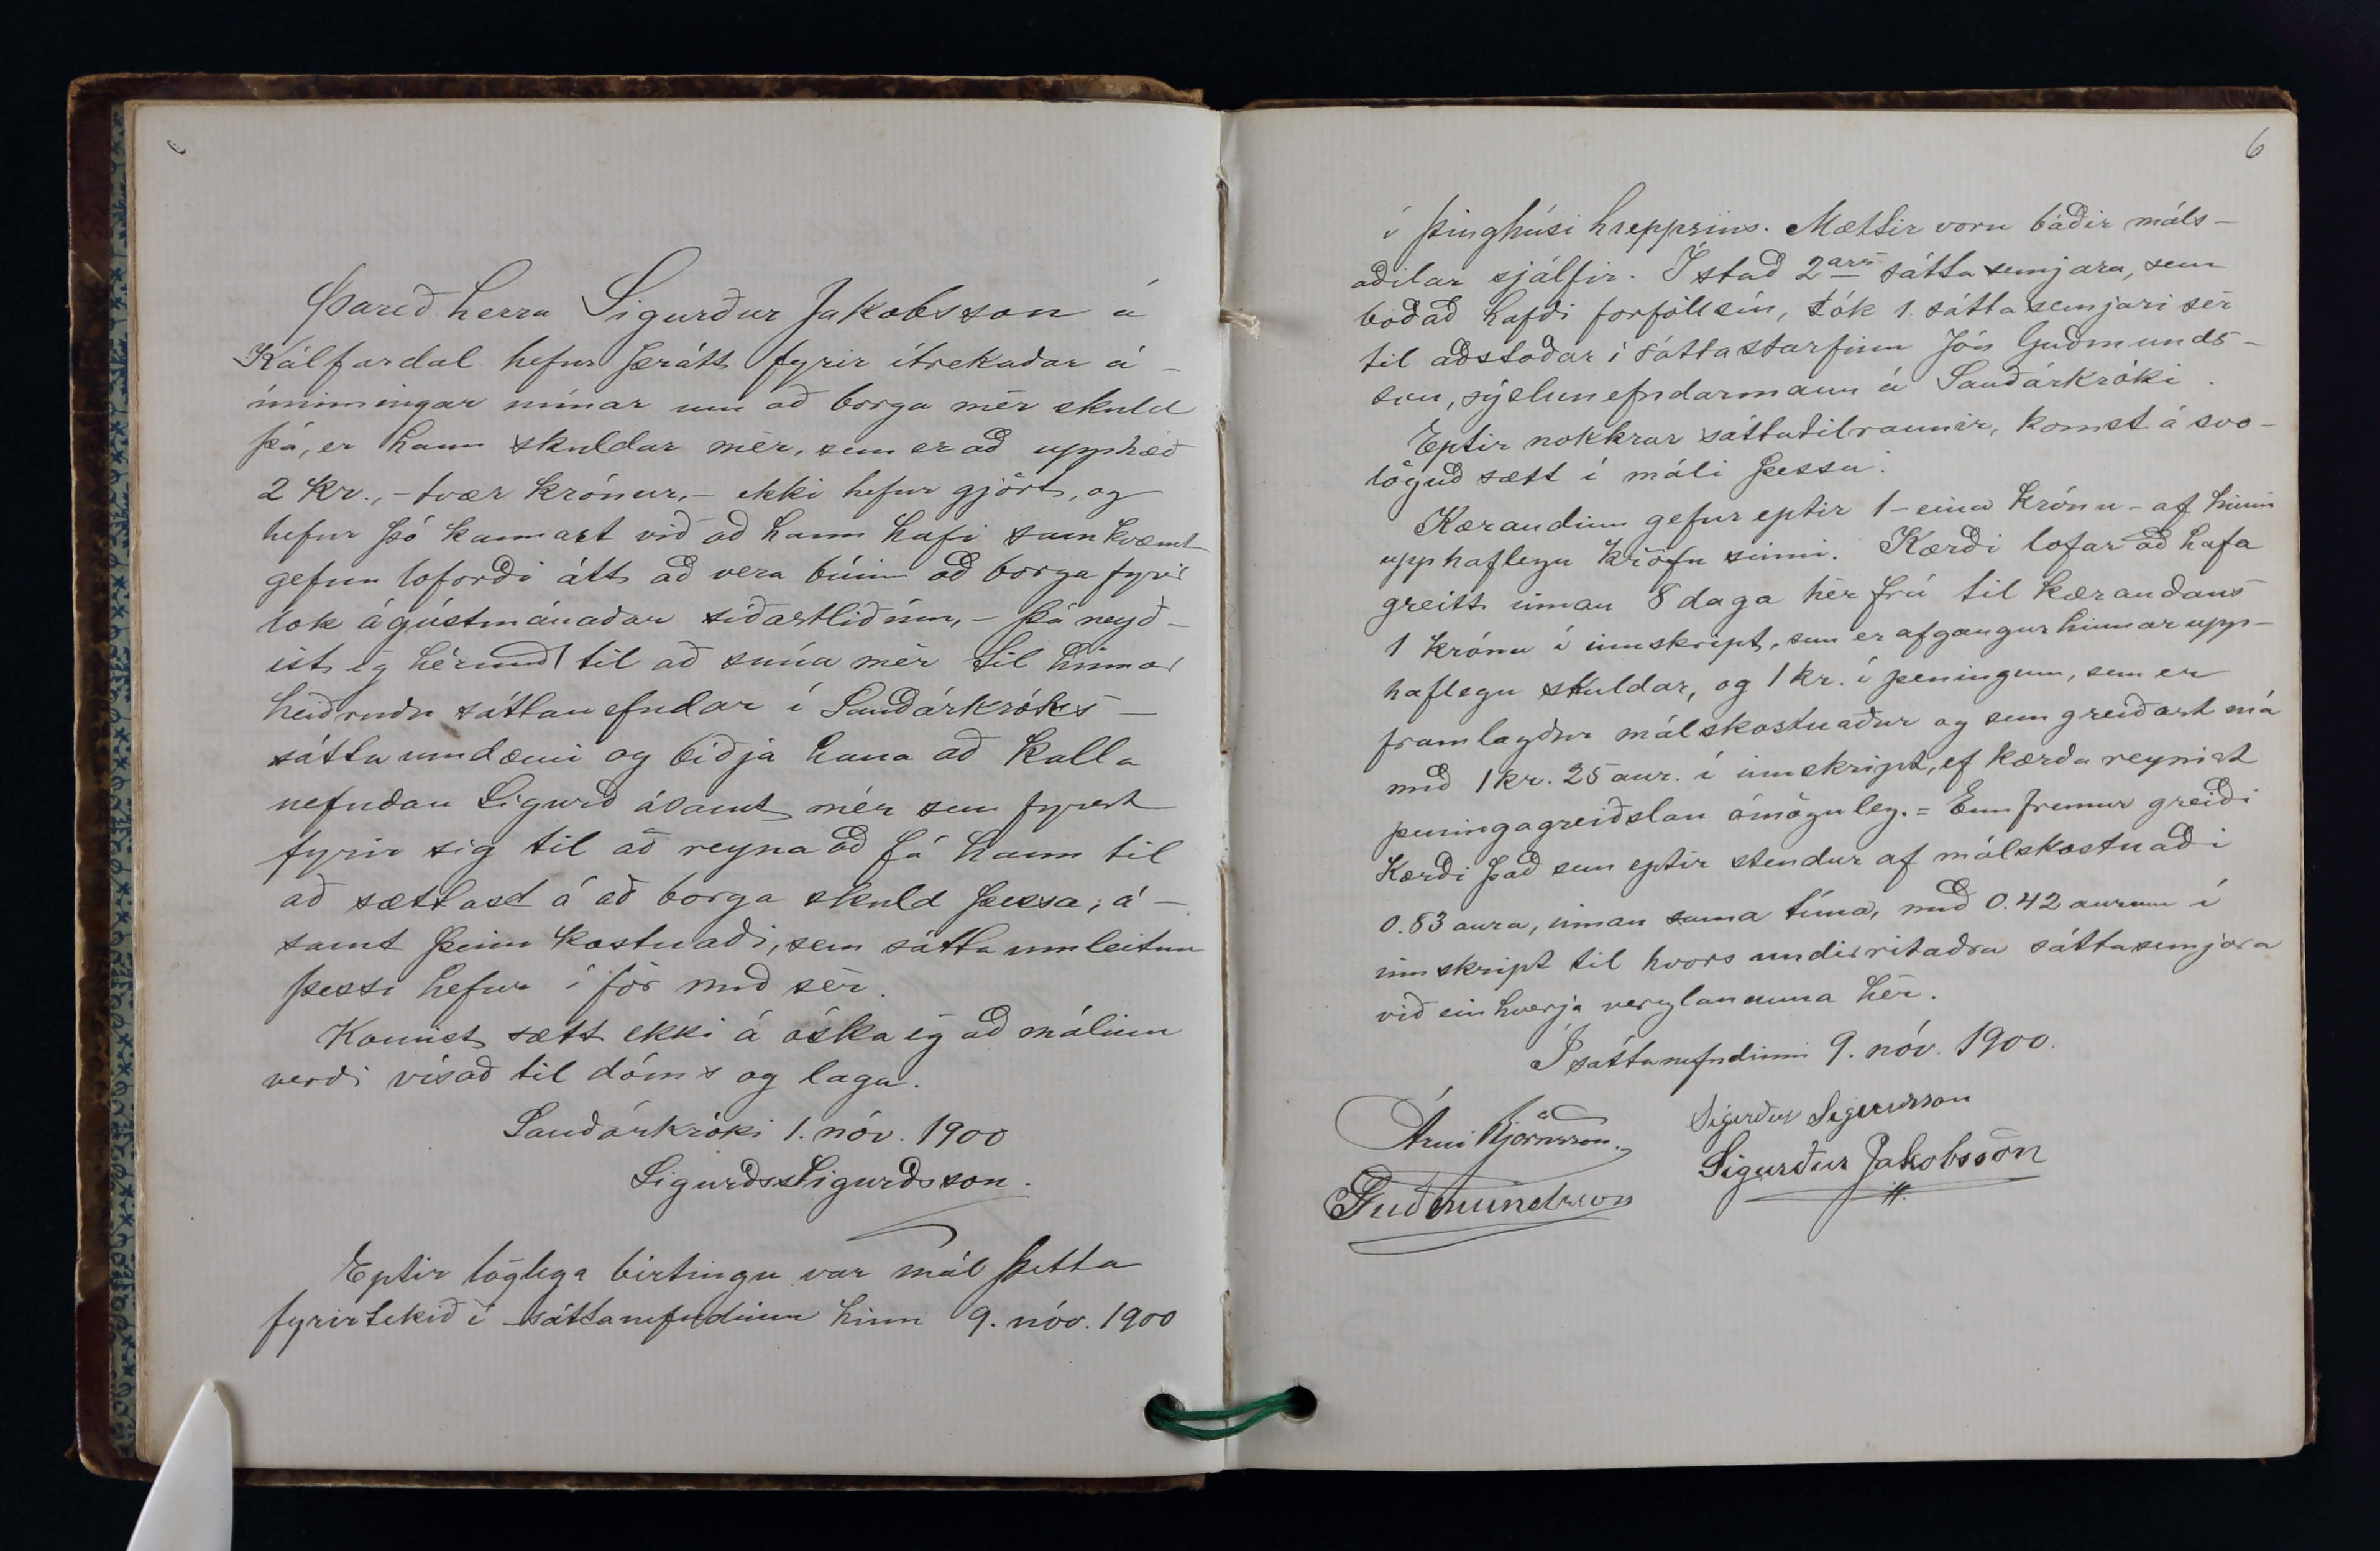 Þareð herra Sigurður Jakobsson á
Kálfardal hefur þrátt fyrir ítrekaðar á-
minningar mínar um að borga mér skuld
þá, er hann skuldar mér, sem er að upphæð
2 kr., - tvær krónur, - ekki hefur gjört, og
hefur þó kannast við að hann hafi samkvæmt
gefnu loforði átt að vera búinn að borga fyrir
lok ágústmánaðar síðastliðinn, - þá neyð-
ist eg hérmeð til að snúa mér til hinnar
heiðruðu sáttanefndar í Sauðárkróks-
sáttaumdæmi og biðja hana að kalla
nefndan Sigurð ásamt mér sem fyrst
fyrir sig til að reyna að fá hann til
að sættast á að borga skuld þessa, á-
samt þeim kostnaði, sem sáttaumleitun
þessi hefur í för með sér.
Komist sætt ekki á óska eg að málinu
verði vísað til dóms og laga.
Sauðárkróki 1. nóv. 1900
Sigurðr Sigurðsson.
Eptir löglega birtingu var mál þetta
fyrirtekið í sáttanefndinni hinn 9. nóv. 1900
6
í þinghúsi hreppsins. Mættir voru báðir máls-
aðilar sjálfir. Í stað 2ars sáttasemjara, sem
boðað hafði forföll sín, tók 1. sáttasemjari sér
til aðstoðar í sáttastarfinu Jón Guðmunds-
son, sýslunefndarmann á Sauðárkróki.
Eptir nokkrar sáttatilraunir, komst á svo-
löguð sætt í máli þessu.
Kærandinn gefur eptir 1 - eina krónu - af hinni
upphaflegu kröfu sinni. Kærði lofar að hafa
greitt innan 8 daga hér frá til kærandans
1 krónu í innskript, sem er afgangur hinnar upp-
haflegu skuldar, og 1 kr. í peningum, sem er
framlagður málskostnaður og sem greiðast má
með 1 kr. 25 aur. í innskript, ef kærða reynist
peningagreiðslan ómöguleg. = Enn fremur greiði
Kærði það sem eptir stendur af málskostnaði
0.83 aura, innan sama tíma, með 0.42 aurum í
innskript til hvors undirritaðra sáttasemjara
við einhverja verzlanunna hér.
Í sáttanefndinni 9. nóv. 1900.
Árni Björnsson. Sigurður Sigurðsson
Guðmundsson Sigurður Jakobsson